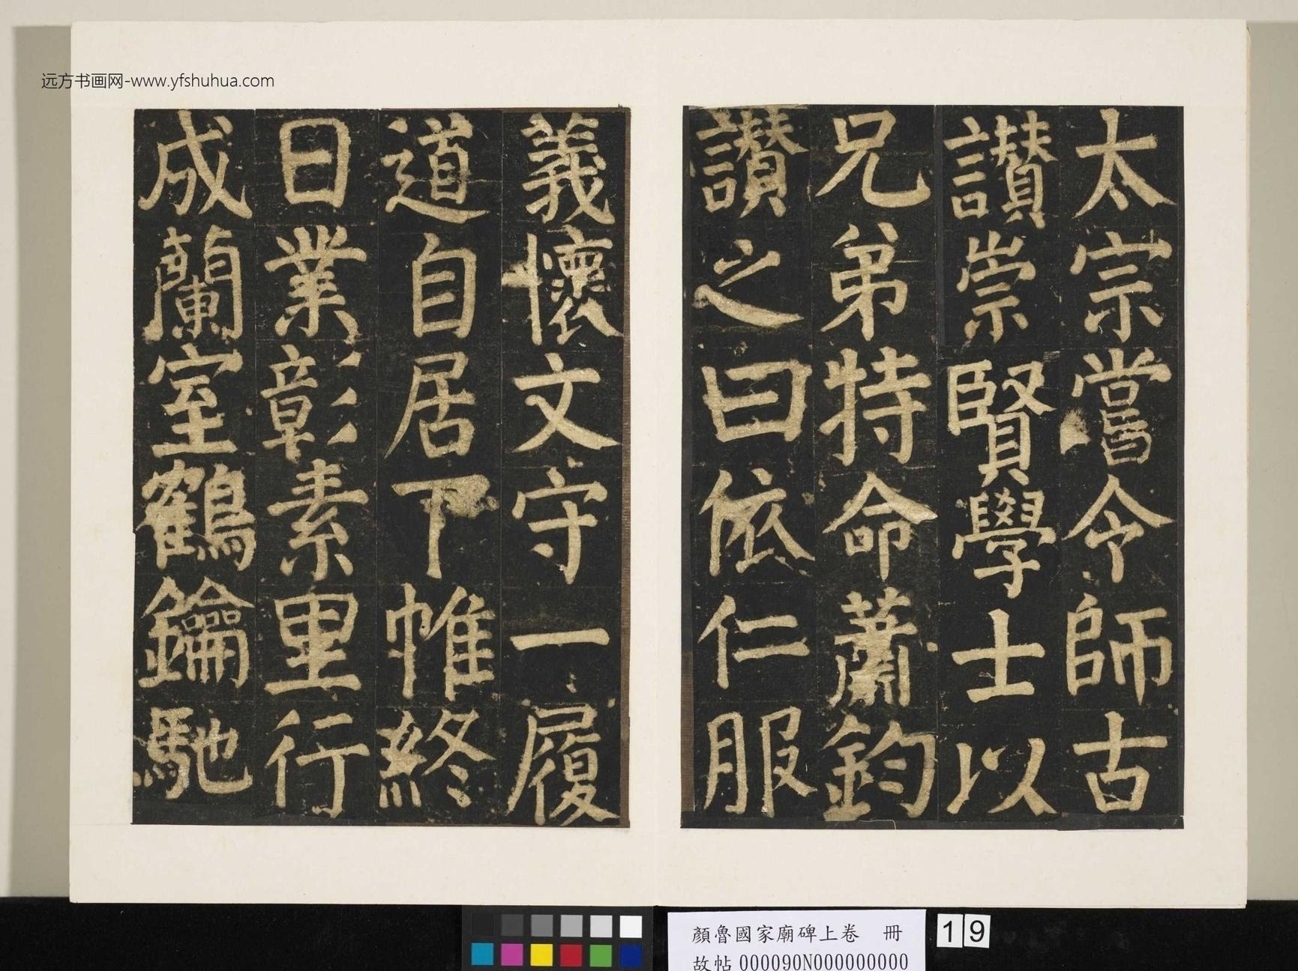 远方书画网-www.yfshuhua.com
太宗嘗令師古
讃崇賢學士以
兄弟特命蕭鈞
讃之曰依仁服
義懷文守一履
道自居下帷終
日業彰素里行
成蘭室鶴鑰馳
顏魯國家廟碑上卷 冊
故帖 000090N000000000
19